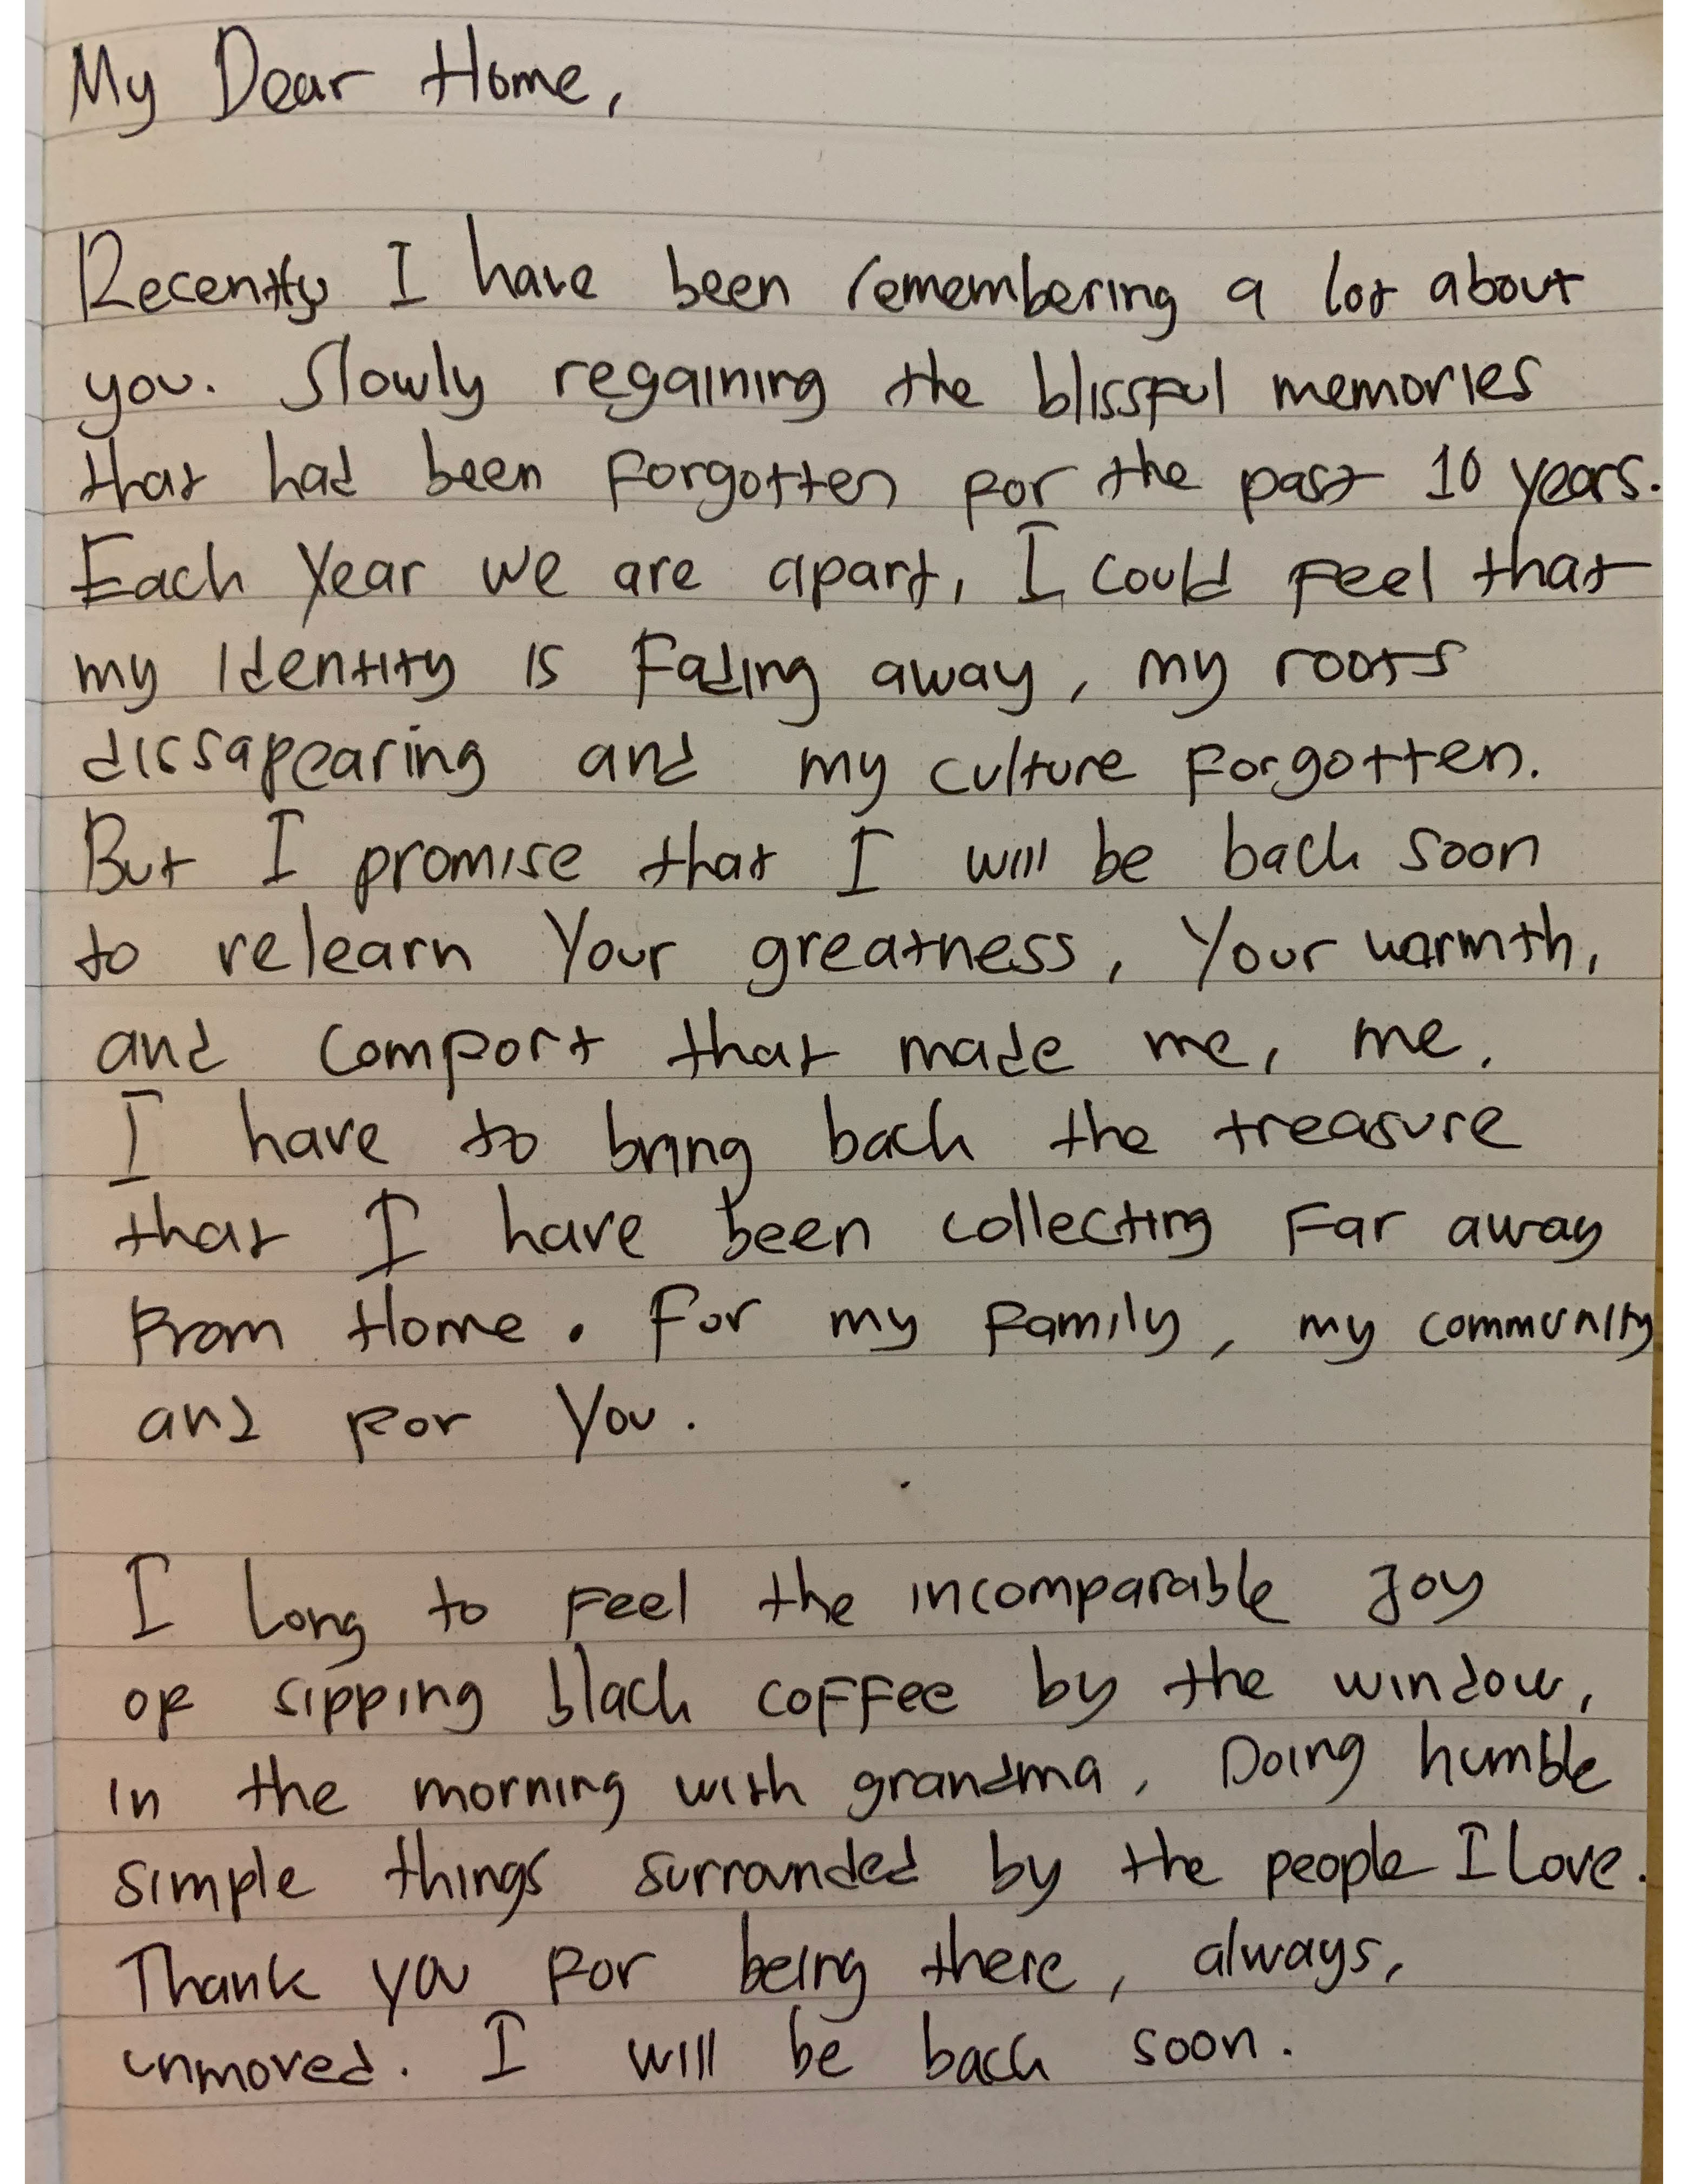 My Dear Home,
Recently I have been remembering a lot about
you. Slowly regaining the blissful memories
that had been forgotten for the past 10 years.
Each Year we are apart, I could feel that
my Identity is Fading away, my roots
dissapearing and my culture forgotten.
But I promise that I will be back soon
to relearn Your greatness, Your warmth,
and comfort that made me, me.
I have to bring back the treasure
that I have been collecting Far away
From Home. For my family, my community
and for You.
I Long to Feel the incomparable Joy
of sipping black coffee by the window,
in the morning with grandma, Doing humble
simple things surrounded by the people I Love.
Thank you for being there, always,
unmoved. I will be back soon.